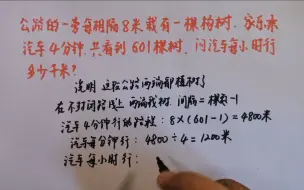 公路的一旁每相隔8米栽有一棵杨树.家乐乘
汽车4分钟.共看到601棵树.问汽车每小时行
多少千米?
说明这段公路两端都植树了
在不封闭路线上两端栽树 间隔=棵数-1
汽车4分钟行的路程:8×(601-1)=4800米
汽车每分钟行:4800÷4=1200米
汽车每小时行: